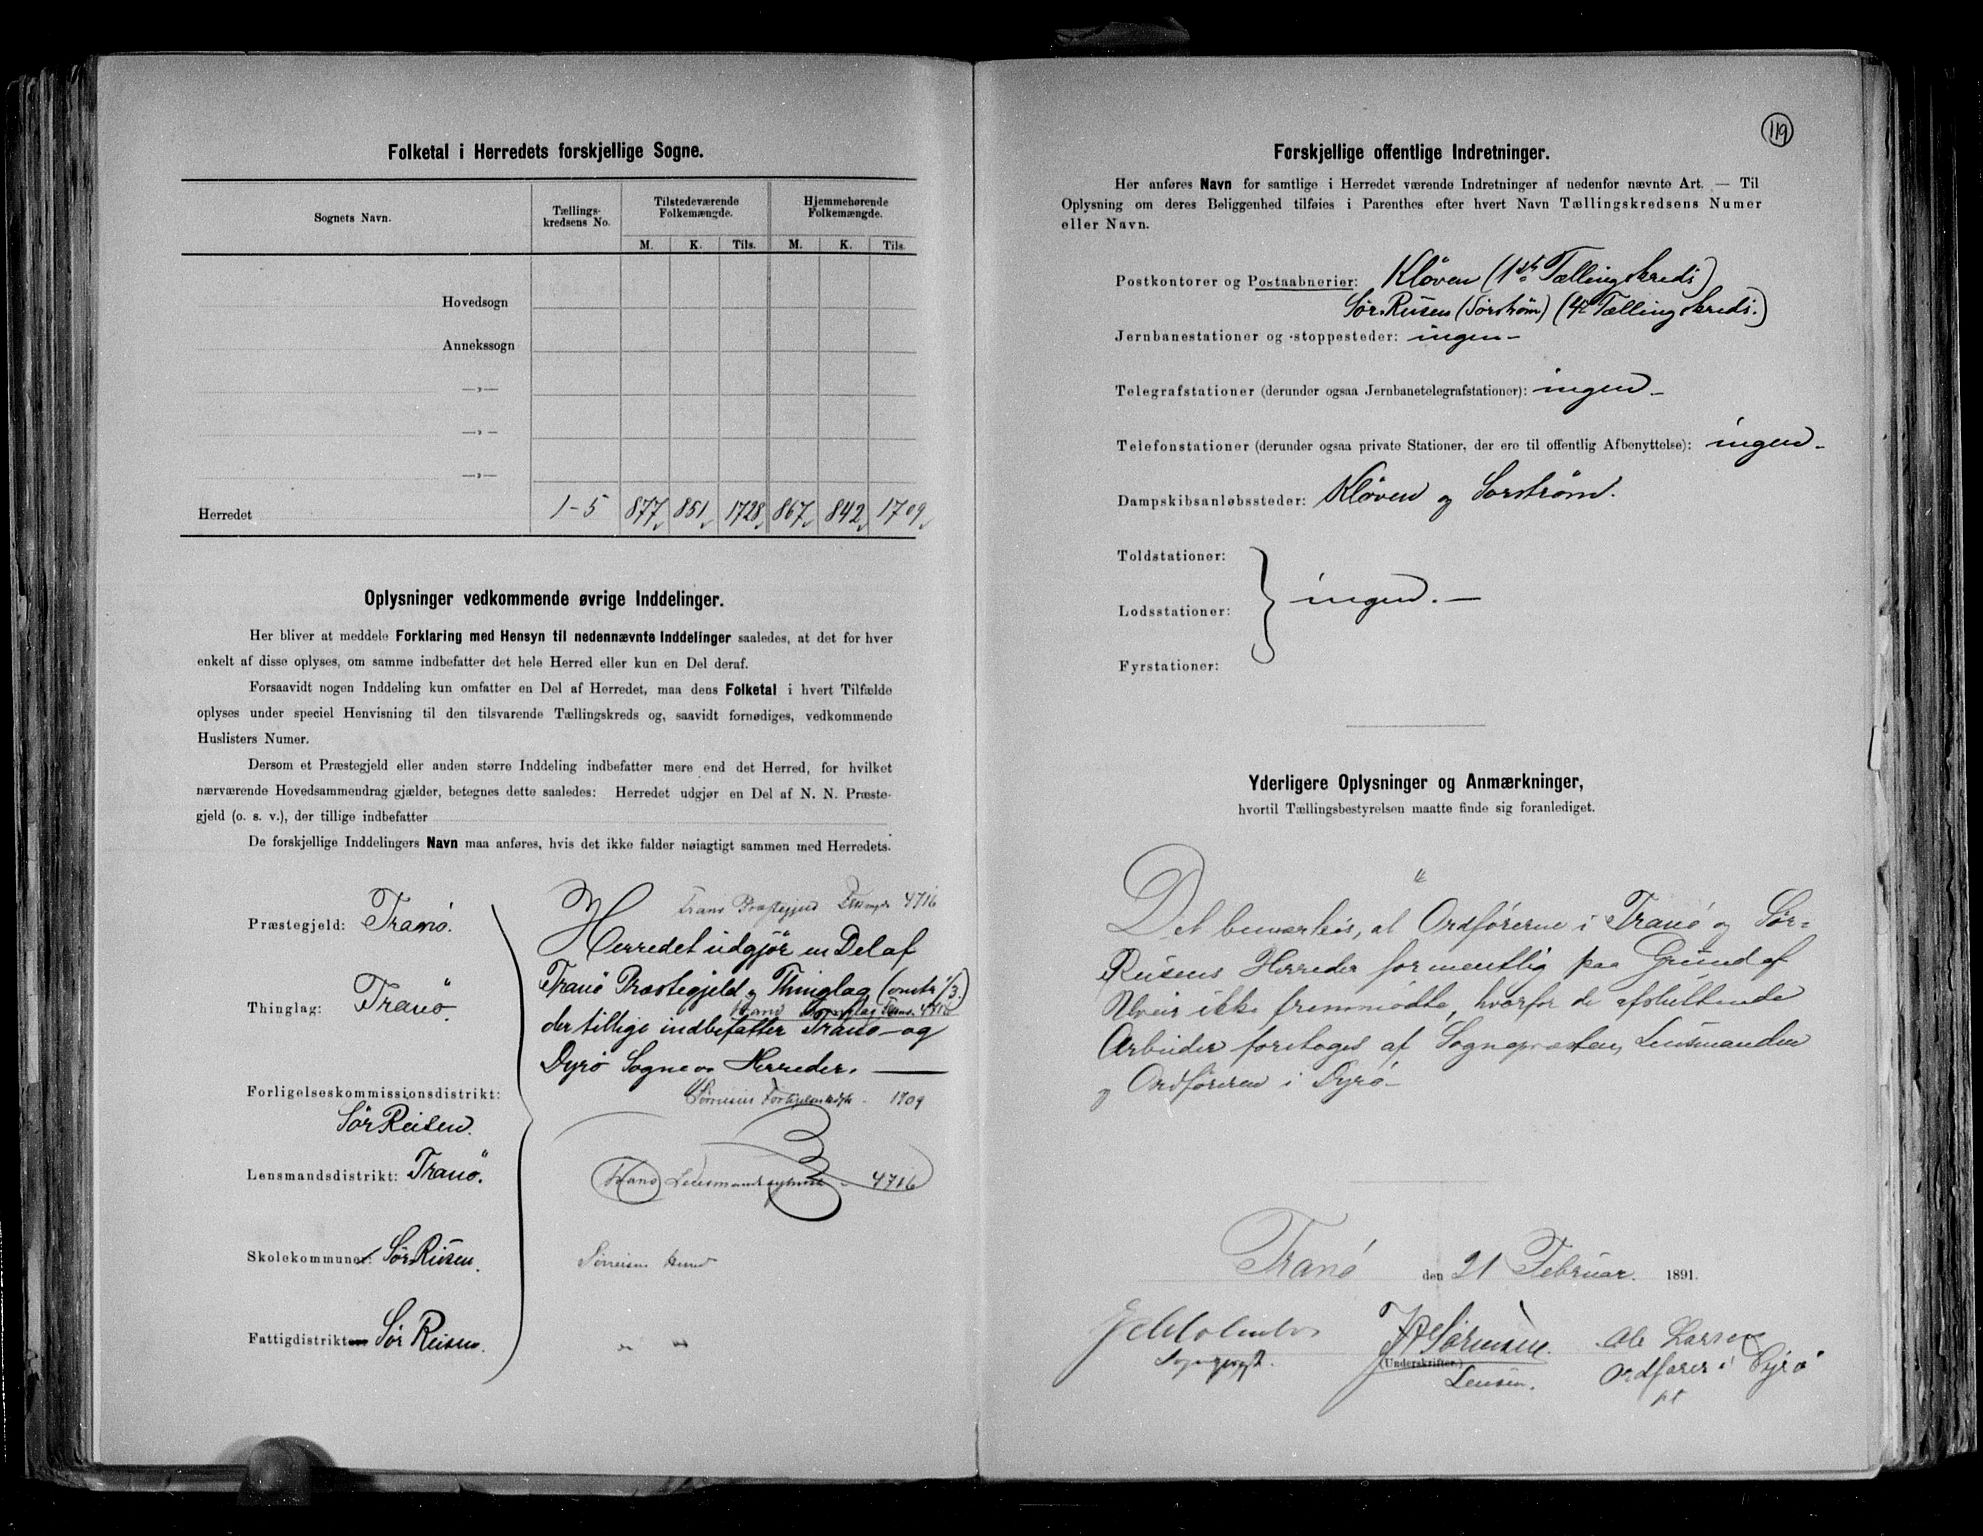 Folketal i Herredets forskjellige Sogne.
Sognets Navn.
Tællings-
kredsens No.
Tilstedeværende
Folkemængde.
Hjemmehørende
Folkemængde.
M. K. Tils. M. K. Tils.
Hovedsogn
Annekssogn
—»—
—»—
—»—
Herredet 1-5 877 851 1728 867 842 1709
Oplysninger vedkommende øvrige Inddelinger.
Her bliver at meddele Forklaring med Hensyn til nedennævnte Inddelinger saaledes, at det for hver
enkelt af disse oplyses, om samme indbefatter det hele Herred eller kun en Del deraf.
Forsaavidt nogen Inddeling kun omfatter en Del af Herredet, maa dens Folketal i hvert Tilfælde
oplyses under speciel Henvisning til den tilsvarende Tællingskreds og, saavidt fornødiges, vedkommende
Huslisters Numer.
Dersom et Præstegjeld eller anden større Inddeling indbefatter mere end det Herred, for hvilket
nærværende Hovedsammendrag gjælder, betegnes dette saaledes: Herredet udgjør en Del af N. N. Præste-
gjeld (o. s. v.), der tillige indbefatter
De forskjellige Inddelingers Navn maa anføres, hvis det ikke falder nøiagtigt sammen med Herredets.
Præstegjeld: Tranö.
Thinglag: Tranö.
Forligelseskommissionsdistrikt:
Sör Reisen.
Lensmandsdistrikt: Tranö.
Skolekommuner: Sör Reisen.
Fattigdistrikter: Sör Reisen.
Tranö Præstegjeld 4716
Herredet udgjör en Del af
Tranö Præstegjeld og Thinglag (omtr 1/3.)
Tranö Thinglag 4716
der tillige indbefatter Tranö- og
Dyrö Sogne og Herreder.
Sörreisen 1709
Tranö Lensmands 4716
Sörreisen Herred
" "
119
Forskjellige offentlige Indretninger.
Her anføres Navn for samtlige i Herredet værende Indretninger af nedenfor nævnte Art. — Til
Oplysning om deres Beliggenhed tilføies i Parenthes efter hvert Navn Tællingskredsens Numer
eller Navn.
Postkontorer og Postaabnerier: Klöven (1ste Tællingskreds)
Sör-Reisen (Sörström) (4de Tællingskreds.)
Jernbanestationer og -stoppesteder: ingen-
Telegrafstationer (derunder ogsaa Jernbanetelegrafstationer): ingen-
Telefonstationer (derunder ogsaa private Stationer, der ere til offentlig Afbenyttelse): ingen-
Dampskibsanløbssteder: Klöven og Sörström.
Toldstationer:
Lodsstationer: ingen.-
Fyrstationer:
Yderligere Oplysninger og Anmærkninger,
hvortil Tællingsbestyrelsen maatte finde sig foranlediget.
Det bemærkes, at Ordförerne i Tranö og Sör-
Reisens Herreder formentlig paa Grund af
Uveir ikke fremmödte, hvorfor de afsluttende
Arbeider foretoges af Sognepræsten, Lensmanden
og Ordföreren i Dyrö-
Tranö den 21 Februar. 1891.
Sognepræst. J Sörensen. Ole Larsen
(Underskrifter.)
Lensm. Ordförer i Dyrö